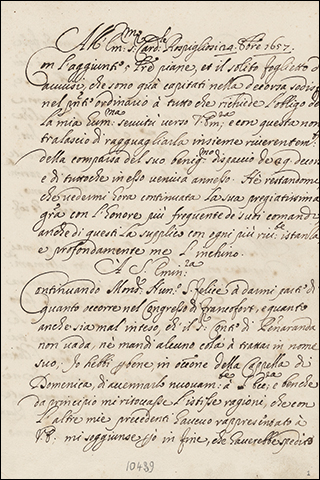 All' Em.mo S. Card.le Rospigliosi 29 Xbre 1657.
Con l'aggiunt' e piane, et il solito foglietto d'
avvisi, che sono quà capitati nella decorsa sod.a
nel p'nte ordinario à tutto che richiede l'obligo de
la mia hum.ma servitù verso V. Em.za; e con questa non
tralascio di ragguagliarla insieme riverentem.te
della comparsa del suo benig.mo dispaccio de
e di tuttoche in esso veniva annesso. Nè restandomi
che vedermi hora continuata la sua pregiatissima
gra' con l'honore più frequente de suoi comandi
anche di questi la supplico con ogni più riv. istanza
e profondamente me l'inchino.
A S. Emin.za
Continuando Mons.r Nun.o S. felice à darmi part.e di
quanto occorre nel Congresso di Francofort, e quanto
anche sia mal inteso, ch' il S. Cont.e di Pegnaranda
non vada, nè mandi alcuno colà à trattar in nome
suo; Io hebbi hbene, in occ.ne della Cappella di
Domenica, di accennarlo nuovam.te à S. ecc.za e benche
da principio mi ritoccasse l'istesse ragioni, che con
l'altre mie precedenti havevo rappresentato à
V. E. mi soggiunse in fine, che haverebbe spedito
10489